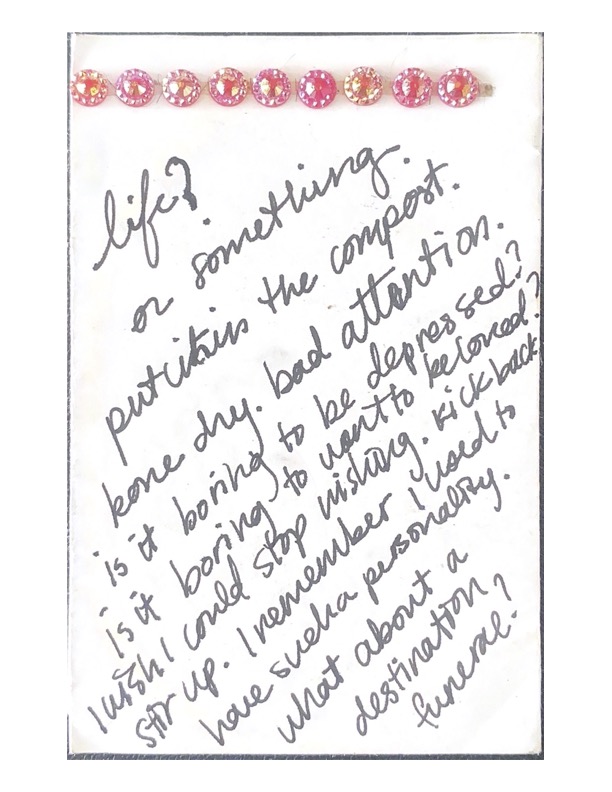 life?
or something.
put citrus in the compost.
bone dry. bad attention.
is it boring to be depressed?
is it boring to want to be loved?
I wish I could stop wishing. kick back
stir up. I remember I used to
have such a personality.
what about a
destination
funeral?